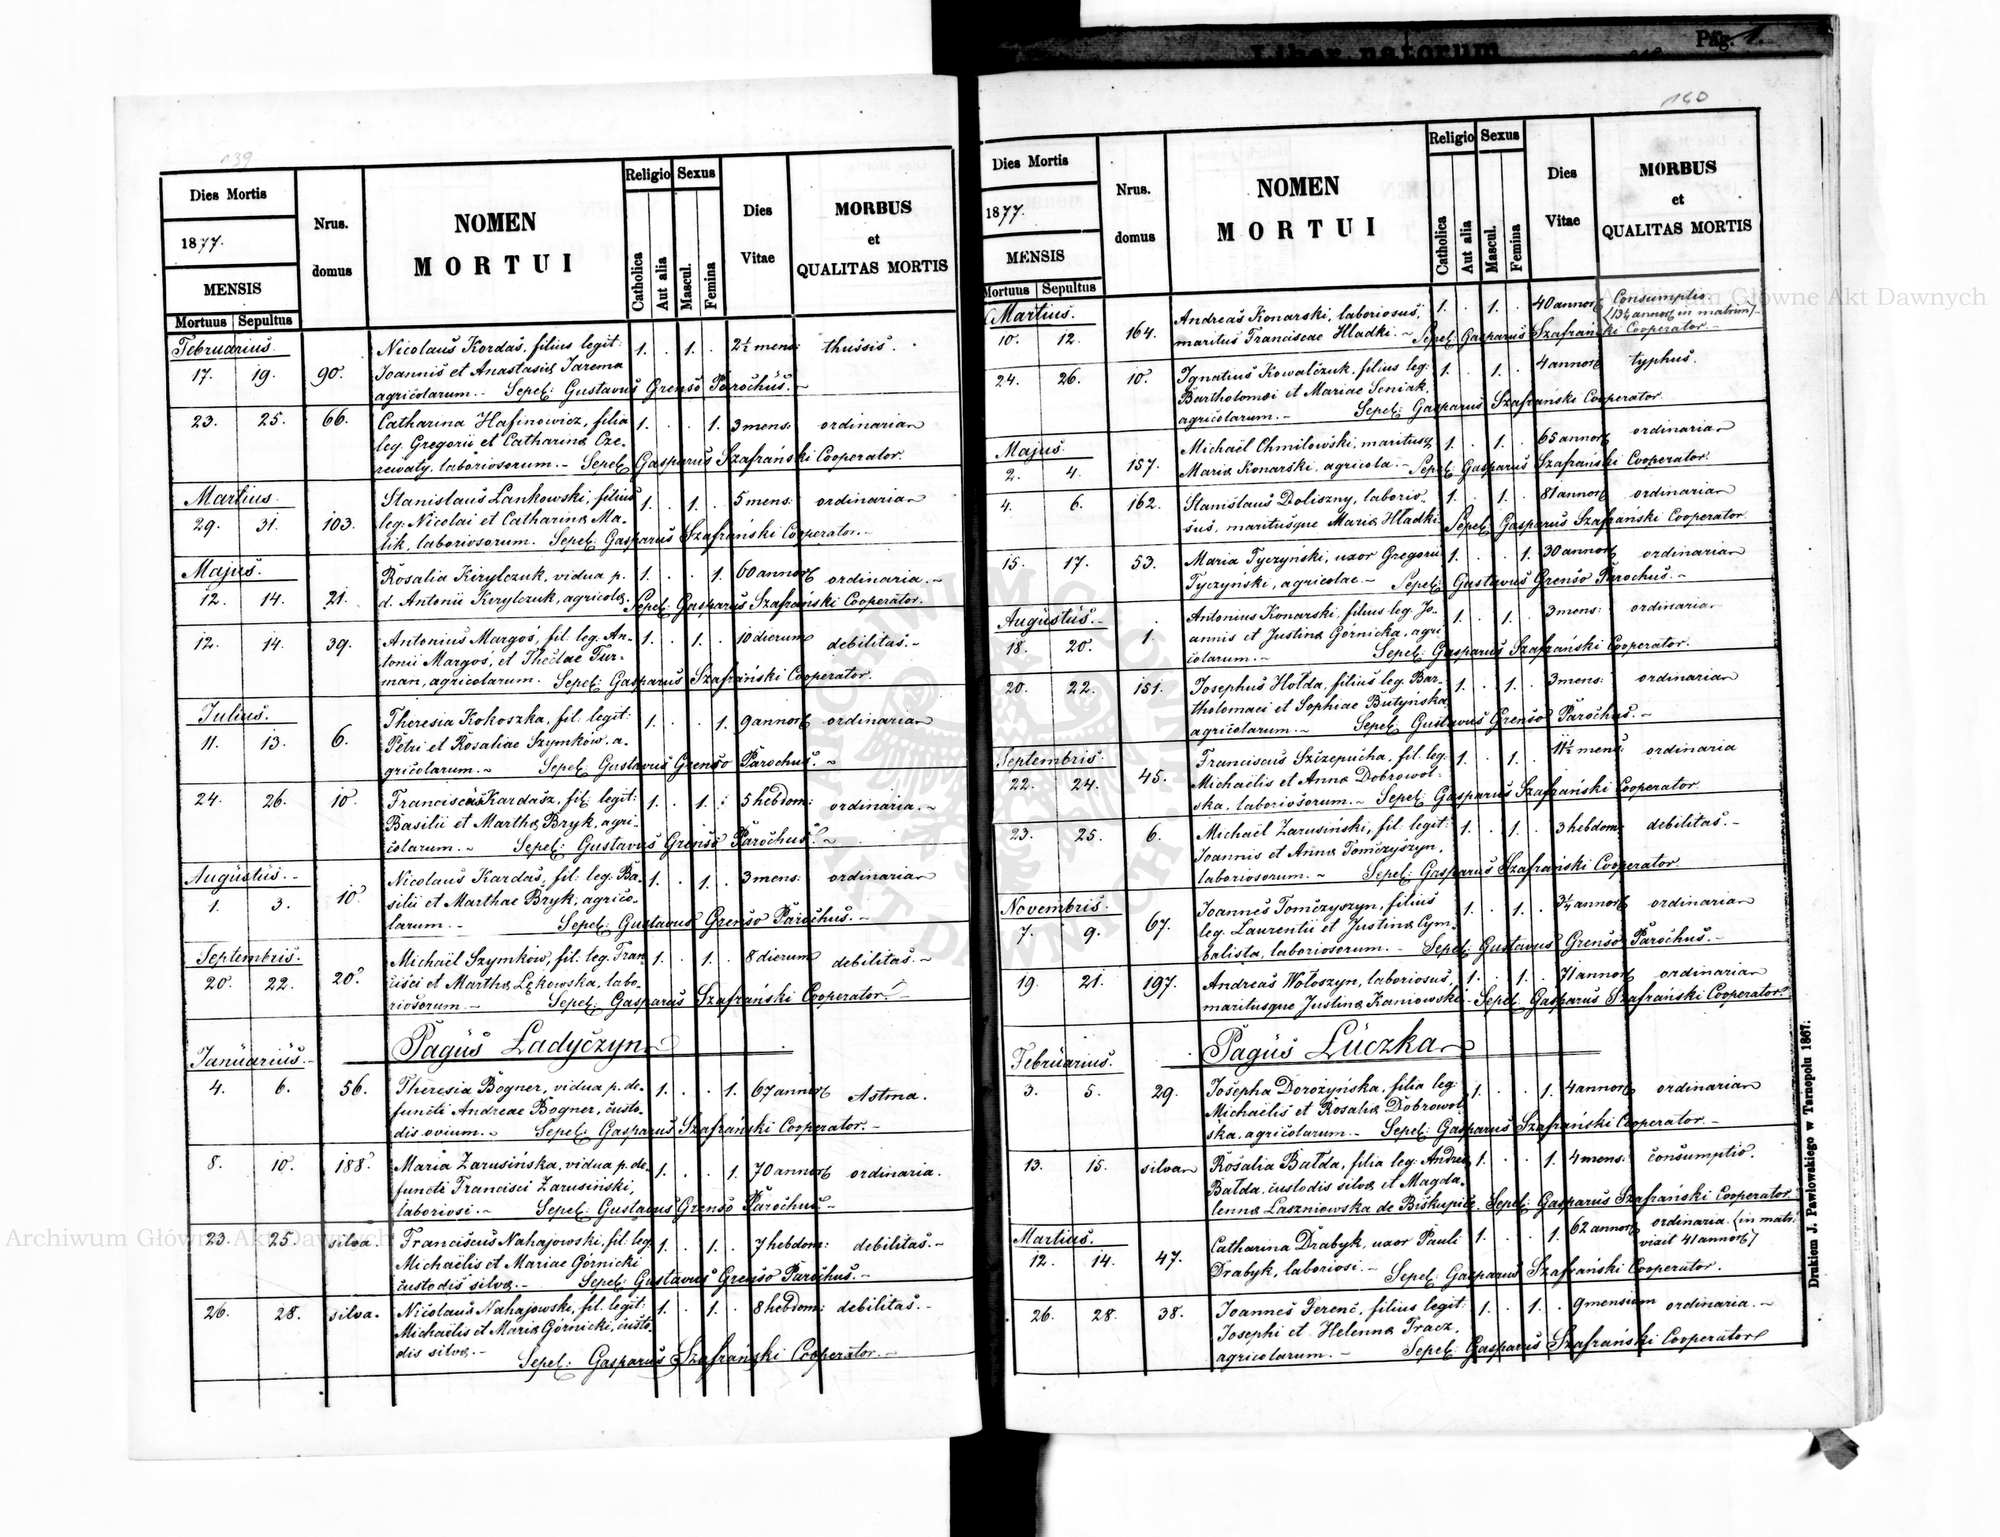 Liber natorum
Pag. 1.
139
Dies Mortis
1877.
MENSIS
Mortuus Sepultus
Nrus.
domus
NOMEN
MORTUI
Religio
Catholica
Aut alia
Sexus
Mascul.
Femina
Dies
Vitae
MORBUS
et
QUALITAS MORTIS
Februarius.
17. 19. 90. Nicolaus Kordaś, filius legit: 1. . 1. . 2½ mens: thussis.
Joannis et Anastasiæ Jarema
agricolarum. Sepel: Gustavus Grenšo Parochus.
23. 25. 66. Catharina Hafinowicz, filia 1. . . 1. 3 mens: ordinaria
leg. Gregorii et Catharinæ Cze-
rewaty, laboriosorum. Sepel: Gasparus Szafrański Cooperator.
Martius.
29. 31. 103. Stanislaus Lankowski, filius 1. . 1. . 5 mens: ordinaria
leg: Nicolai et Catharinæ Ma-
lik, laboriosorum. Sepel: Gasparus Szafrański Cooperator.
Majus.
12. 14. 21. Rosalia Kirylczuk, vidua p. 1. . . 1. 60 annor ordinaria.
d. Antonii Kirylczuk, agricolæ. Sepel: Gasparus Szafrański Cooperator.
12. 14. 39. Antonius Margoś, fil. leg. An- 1. . 1. . 10 dierum debilitas.
tonii Margoś, et Theclae Fur-
man, agricolarum. Sepel: Gasparus Szafrański Cooperator.
Julius.
11. 13. 6. Theresia Kokoszka, fil: legit: 1. . . 1. 9 annor ordinaria
Petri et Rosaliae Szymków, a-
gricolarum. Sepel: Gustavus Grenšo Parochus.
24. 26. 10. Franciscus Kardasz, fil: legit: 1. . 1. . 5 hebdom: ordinaria.
Basilii et Marthæ Bryk, agri-
colarum. Sepel: Gustavus Grenšo Parochus.
Augustus.
1. 3. 10. Nicolaus Kardaś, fil: leg: Ba- 1. . 1. . 3 mens: ordinaria
silii et Marthae Bryk, agrico-
larum. Sepel: Gustavus Grenšo Parochus.
Septembris.
20. 22. 20. Michaël Szymków, fil: leg. Fran 1. . 1. . 8 dierum debilitas.
cisci et Marthæ Lękowska, labo-
riosorum. Sepel: Gasparus Szafrański Cooperator.
Pagus Ladyczyn
Januarius.
4. 6. 56. Theresia Bogner, vidua p. de- 1. . . 1. 67 annor Astma.
functi Andreae Bogner, custo-
dis ovium. Sepel: Gasparus Szafrański Cooperator.
8. 10. 188. Maria Zarusińska, vidua p. de- 1. . . 1. 70 annor ordinaria.
functi Francisci Zarusiński,
laboriosi. Sepel: Gustavus Grenšo Parochus.
23. 25. silva. Franciscus Nahajowski, fil. leg. 1. . 1. . 7 hebdom: debilitas.
Michaëlis et Mariae Górnicki
custodis silvæ. Sepel: Gustavus Grenšo Parochus.
26. 28. silva. Nicolaus Nahajowski, fil. legit: 1. . 1. . 8 hebdom: debilitas.
Michaëlis et Mariæ Górnicki, custo-
dis silvæ. Sepel: Gasparus Szafrański Cooperator.
140
Dies Mortis
1877.
MENSIS
Mortuus Sepultus
Nrus.
domus
NOMEN
MORTUI
Religio
Catholica
Aut alia
Sexus
Mascul.
Femina
Dies
Vitae
MORBUS
et
QUALITAS MORTIS
Martius.
10. 12. 164. Andreas Konarski, laboriosus, 1. . 1. . 40 annor Consumptio
(13½ annor in matrim)
maritus Franciscae Hladki. Sepel: Gasparus Szafrański Cooperator.
24. 26. 10. Ignatius Kowalczuk, filius leg: 1. . 1. . 4 annor typhus.
Bartholomæi et Mariae Seniak,
agricolarum. Sepel: Gasparus Szafrański Cooperator.
Majus.
2. 4. 157. Michaël Chmilowski, maritusq 1. . 1. . 65 annor ordinaria
Mariæ Konarski, agricola. Sepel: Gasparus Szafrański Cooperator.
4. 6. 162. Stanislaus Doliszny, laborio- 1. . 1. . 81 annor ordinaria
sus, maritusque Mariæ Hładki. Sepel: Gasparus Szafrański Cooperator
15. 17. 53. Maria Tyczyński, uxor Gregorii 1. . . 1. 30 annor ordinaria
Tyczyński, agricolae. Sepel: Gustavus Grenšo Parochus.
Augustus.
18. 20. 1. Antonius Konarski, filius leg. Jo- 1. . 1. . 3 mens: ordinaria
annis et Justinæ Górnicka, agri
colarum. Sepel: Gasparus Szafrański Cooperator.
20. 22. 151. Josephus Hołda, filius leg. Bar- 1. . 1. . 3 mens: ordinaria
tholemaei et Sophiae Butyńska,
agricolarum. Sepel: Gustavus Grenšo Parochus.
Septembris.
22. 24. 45. Franciscus Szczepucha, fil. leg. 1. . 1. . 11½ mens: ordinaria
Michaëlis et Annæ Dobrowol-
ska, laboriosorum. Sepel: Gasparus Szafrański Cooperator
23. 25. 6. Michaël Zarusiński, fil. legit: 1. . 1. . 3 hebdom: debilitas.
Joannis et Annæ Tomczyszyn,
laboriosorum. Sepel: Gasparus Szafrański Cooperator
Novembris.
7. 9. 67. Joannes Tomczyszyn, filius 1. . 1. . 3½ annor ordinaria
leg. Laurentii et Justinæ Cym-
balista, laboriosorum. Sepel: Gustavus Grenšo Parochus.
19. 21. 197. Andreas Wołoszyn, laboriosus, 1. . 1. . 71 annor ordinaria
maritusque Justinæ Kaniowski. Sepel: Gasparus Szafrański Cooperator.
Pagus Luczka
Februarius.
3. 5. 29. Josepha Dorożyńska, filia leg: 1. . . 1. 4 annor ordinaria
Michaëlis et Rosaliæ Dobrowol
ska, agricolarum. Sepel: Gasparus Szafrański Cooperator.
13. 15. silva Rosalia Bałda, filia leg: Andreæ 1. . . 1. 4 mens: consumptio.
Bałda, custodis silvæ et Magda-
lenæ Laszniowska de Biskupice. Sepel: Gasparus Szafrański Cooperator
Martius.
12. 14. 47. Catharina Drabyk, uxor Pauli 1. . . 1. 62 annor ordinaria (in matr:
vixit 41 annor)
Drabyk, laboriosi. Sepel: Gasparus Szafrański Cooperator.
26. 28. 38. Joannes Ferenc, filius legit: 1. . 1. . 9 mensium ordinaria.
Josephi et Helenæ Tracz,
agricolarum. Sepel: Gasparus Szafrański Cooperator
Drukiem J. Pawłowskiego w Tarnopolu 1867.
Archiwum Główne Akt Dawnych
Archiwum Główne Akt Dawnych
ARCHIWUM GŁÓWNE AKT DAWNYCH